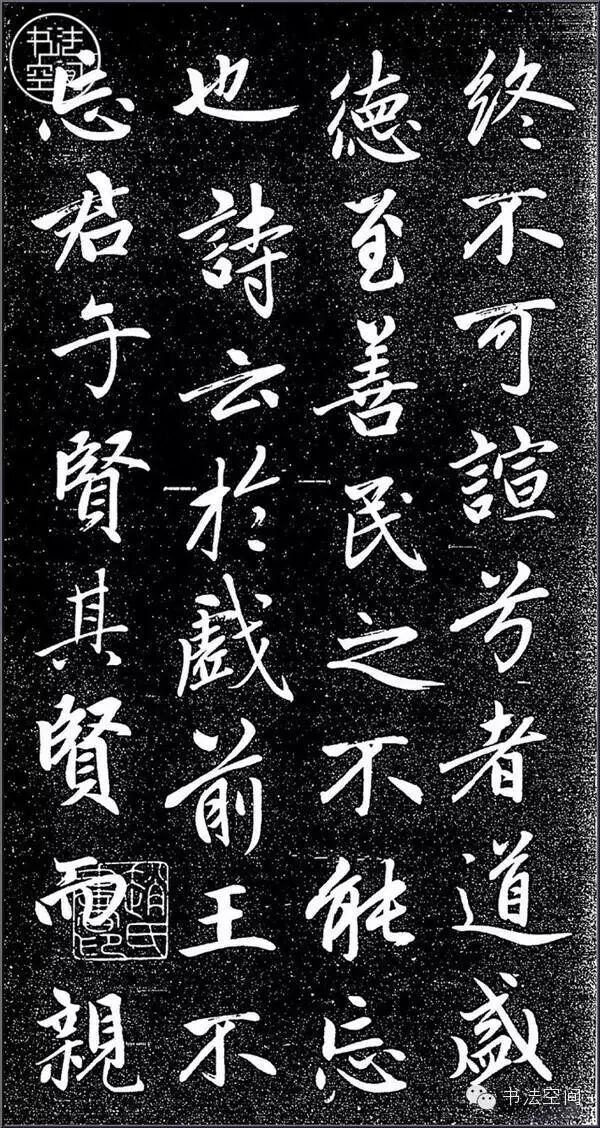 终不可諠兮者道盛
德至善民之不能忘
也詩云於戲前王不
忘君子賢其賢而親
书法空间
趙氏書印
书法空间